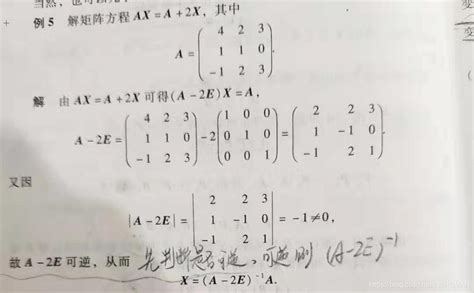 当然，也可
例 5 解矩阵方程 AX = A + 2X, 其中
A = ( 4 2 3
1 1 0
-1 2 3 ).
解 由 AX = A + 2X 可得 (A - 2E)X = A,
A - 2E = ( 4 2 3
1 1 0
-1 2 3 ) - 2 ( 1 0 0
0 1 0
0 0 1 ) = ( 2 2 3
1 -1 0
-1 2 1 ).
又因
|A - 2E| = | 2 2 3
1 -1 0
-1 2 1 | = -1 ≠ 0,
故 A - 2E 可逆, 从而 先判断是否可逆，可逆则 (A-2E)⁻¹
X = (A - 2E)⁻¹A.
变
变